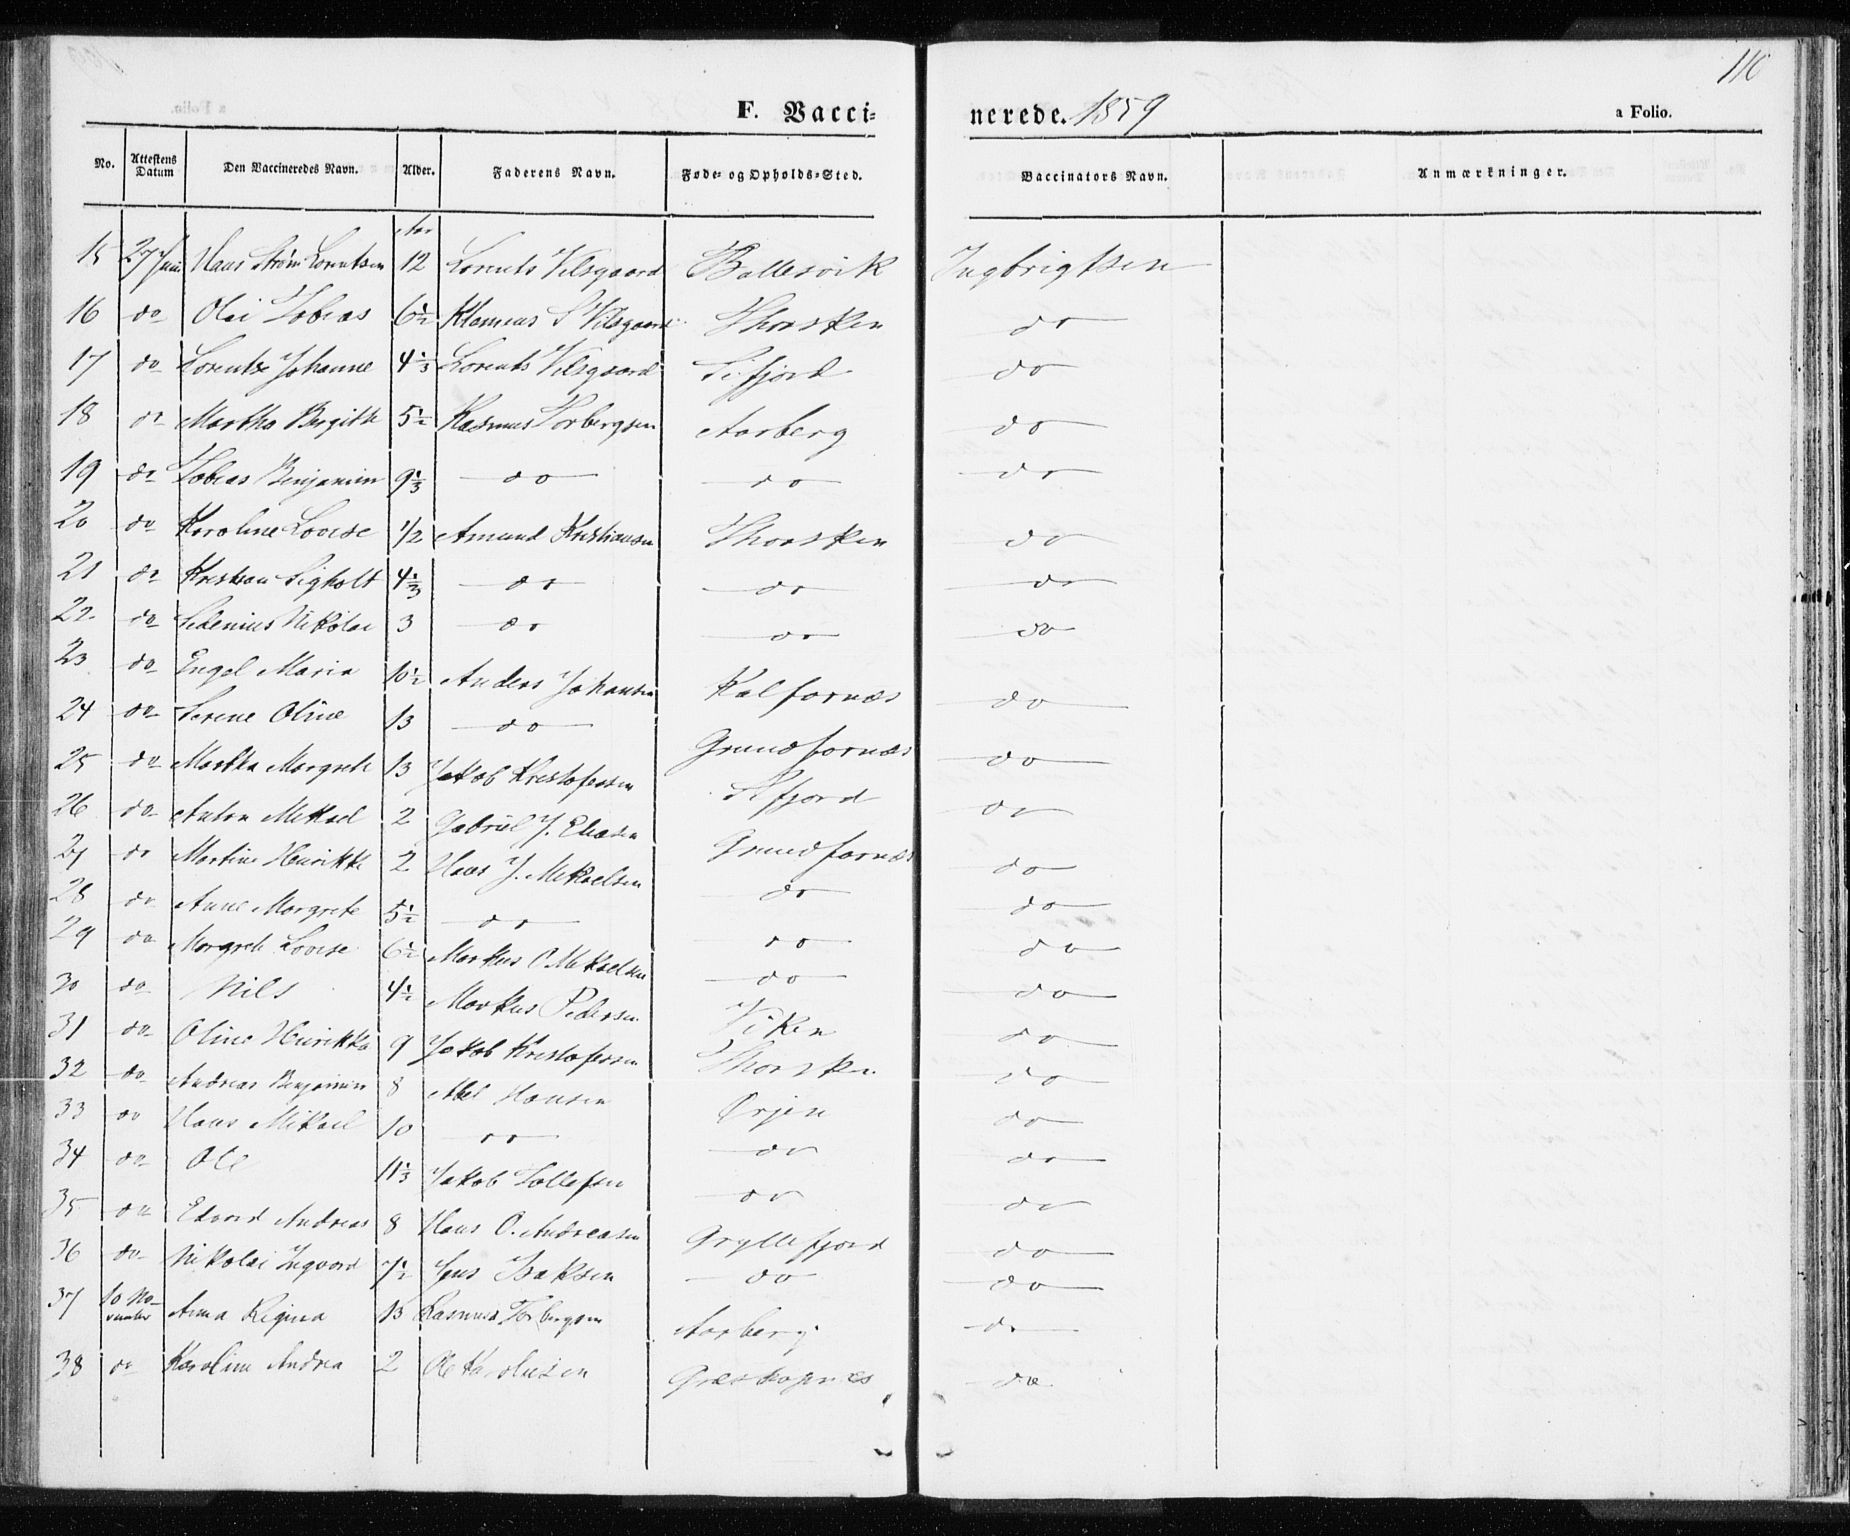 110
F. Vacci- nerede. 1859 a Folio.
No. Attestens Datum Den Vaccineredes Navn. Alder. Faderens Navn. Føde- og Opholds-Sted. Vaccinators Navn. Anmærkninger.
Aar
15 27 Juni Hans Strøm Lorentsen 12 Lorents Vilsgaard Ballesvik Ingbrigtsen
16 do Olai Tobias 6½ Klemeus S Vilsgaard Thorsken do
17 do Lorentse Johanne 4⅓ Lorents Vilsgaard Sifjord do
18 do Martha Birgitte 5½ Rasmus Torbergsen Aarberg do
19 do Tobias Benjamin 9⅓ do do do
20 do Karoline Lovise 1/2 Amund Kristiansen Thorsken do
21 do Kristian Sigholt 4⅓ do do do
22 do Sedenius Nikolai 3 do do do
23 do Engel Maria 10½ Anders Johansen Kalfarnæs do
24 do Serene Oline 13 do Grundfarnæs do
25 do Martha Margrete 13 Jakob Kristofersen Sifjord do
26 do Anton Mikael 2 Gabriel J. Eliasen Grundfarnæs do
27 do Martine Henrikke 2 Hans J. Mikaelsen do do
28 do Anne Margrete 5½ do do do
29 do Margrete Lovise 6½ Markus O Mikaelsen do do
30 do Nils 4½ Markus Pedersen Viken do
31 do Oline Henrikka 9 Jakob Kristofersen Thorsken do
32 do Andreas Benjamin 8 Abel Hansen Ørjen do
33 do Hans Mikael 10 do do do
34 do Ole 11⅓ Jakob Tollefsen do do
35 do Edvard Andreas 8 Hans O. Andreasen Gryllefjord do
36 do Nikolai Ingvard 7½ Jens Isaksen do do
37 10 November Anna Regina 13 Rasmus Torbergsen Aarberg do
38 do Karoline Andrea 2 Ole Karolusen Græskopnæs do